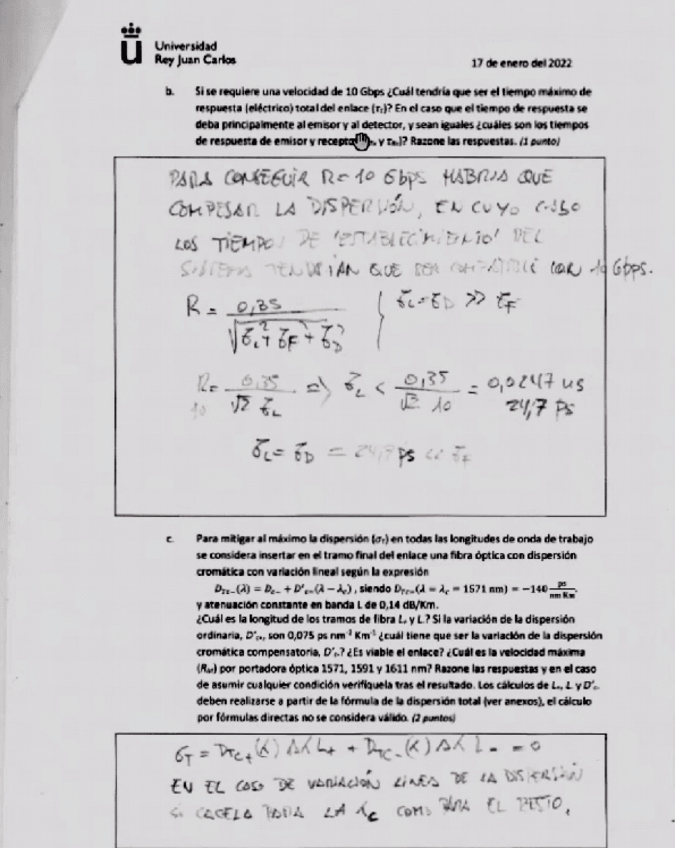 Universidad
Rey Juan Carlos
17 de enero del 2022
b. Si se requiere una velocidad de 10 Gbps ¿Cuál tendría que ser el tiempo máximo de
respuesta (eléctrico) total del enlace (τᵣ)? En el caso que el tiempo de respuesta se
deba principalmente al emisor y al detector, y sean iguales ¿cuáles son los tiempos
de respuesta de emisor y y τ)? Razone las respuestas. (1 punto)
PARA CONSEGUIR R=10 Gbps HABRIA QUE
COMPESAR LA DISPERSIÓN, EN CUYO CASO
LOS TIEMPOS DE 'ESTABLECIMIENTO' DEL
SISTEMA TENDRIAN QUE SER COMPATIBLE CON 10 Gbps.
R = 0,35 / √(σ_L² + σ_F² + σ_D²) σ_L = σ_D >> σ_F
R = 0,35 / √2 σ_L => σ_L < 0,35 / √2 10 = 0,0247 ns
10 24,7 ps
σ_L = σ_D = 24,7 ps << σ_F
c. Para mitigar al máximo la dispersión (σ_T) en todas las longitudes de onda de trabajo
se considera insertar en el tramo final del enlace una fibra óptica con dispersión
cromática con variación lineal según la expresión
D_Tc-(λ) = D_c- + D'_c-(λ − λ_c), siendo D_Tc-(λ = λ_c = 1571 nm) = −140 ps/nm Km
y atenuación constante en banda L de 0,14 dB/Km.
¿Cuál es la longitud de los tramos de fibra L₊ y L₋? Si la variación de la dispersión
ordinaria, D'_c+, son 0,075 ps nm⁻² Km⁻¹ ¿cuál tiene que ser la variación de la dispersión
cromática compensatoria, D'_c-? ¿Es viable el enlace? ¿Cuál es la velocidad máxima
por portadora óptica 1571, 1591 y 1611 nm? Razone las respuestas y en el caso
de asumir cualquier condición verifíquela tras el resultado. Los cálculos de L₊, L₋ y D'_c-
deben realizarse a partir de la fórmula de la dispersión total (ver anexos), el cálculo
por fórmulas directas no se considera válido. (2 puntos)
σ_T = D_TC+(λ) Δλ L+ + D_TC-(λ) Δλ L- = 0
EN EL CASO DE VARIACIÓN LINEAL DE LA DISPERSIÓN
PARA LA λc COMO PARA EL RESTO.